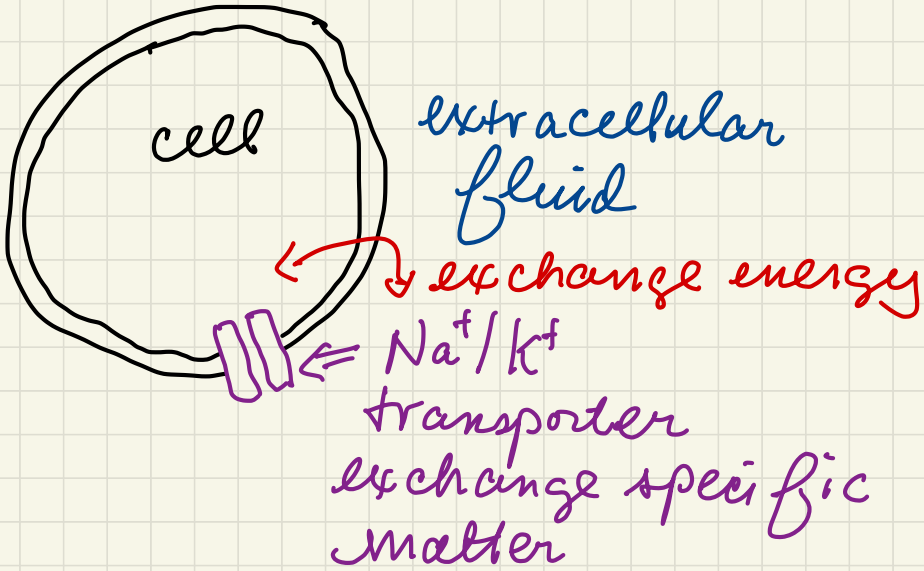 cell
extracellular
fluid
exchange energy
Na⁺/K⁺
transporter
exchange specific
matter